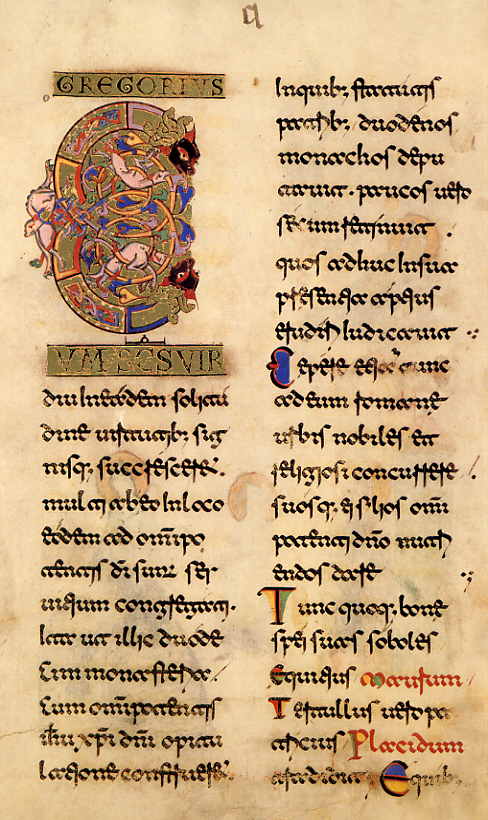 a
GREGORIUS
CUM SCS VIR
diu in eadem solitu
dine uirtutib; sig
nisq; succresceret.
multi ab eo in loco
eodem ad omipo
tentis di sunt ser
uitium congregati.
Ita ut illic duode
cim monasteria.
Cum omipotentis
ihu xpi dni opitu
latione construeret.
In quib; statutis
patrib; duodenos
monachos depu
tauit. paucos uero
secum retinuit.
quos adhuc in sua
presentia aptius
erudiri iudicauit
Cepere etia tunc
ad eum romane
urbis nobiles et
religiosi concurrere.
suosq; ei filios omi
potenti dno nutri
endos dare
Tunc quoq; bone
spei suas soboles
Equitius maurum
Tertullus uero pa
tricius Placidum
tradidit Equib;